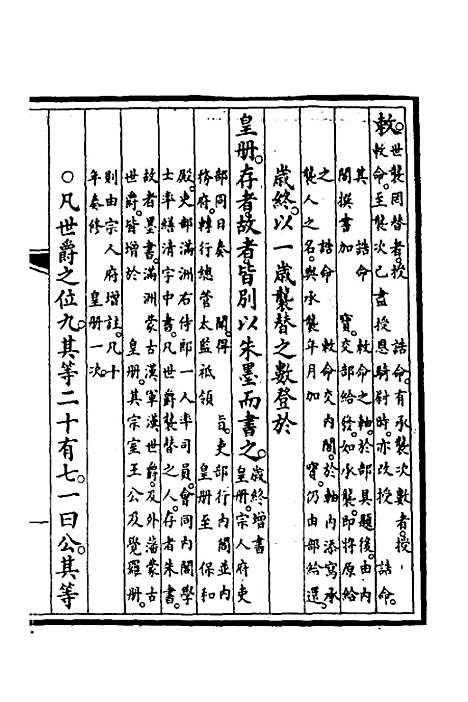 敕。世襲罔替者。授 誥命。有承襲次數者。授
敕命。至襲次已盡授恩騎尉時。亦改授 誥命。
其 誥命 敕命之軸。於部具題後。由內
閣撰書加 寶。交部給發。如承襲。即將原給
之 誥命 敕命交內閣。於軸內添寫承
襲人之名。與承襲年月加 寶。仍由部給還。
歲終。以一歲襲替之數登於
皇册。存者故者皆別以朱墨而書之。歲終增書
皇册。宗人府吏
部同日奏 聞。得 旨。吏部行內閣並內
務府。轉行總管太監祗領 皇册至 保和
殿。吏部滿洲右侍郎一人率司員。會同內閣學
士率繕清字中書。凡世爵襲替之人。存者朱書。
故者墨書。滿洲蒙古漢軍漢世爵及外藩蒙古
世爵。皆增於 皇册。其宗室王公及覺羅册。
則由宗人府增註。凡十
年奏修 皇册一次。
○凡世爵之位九。其等二十有七。一曰公。其等
一